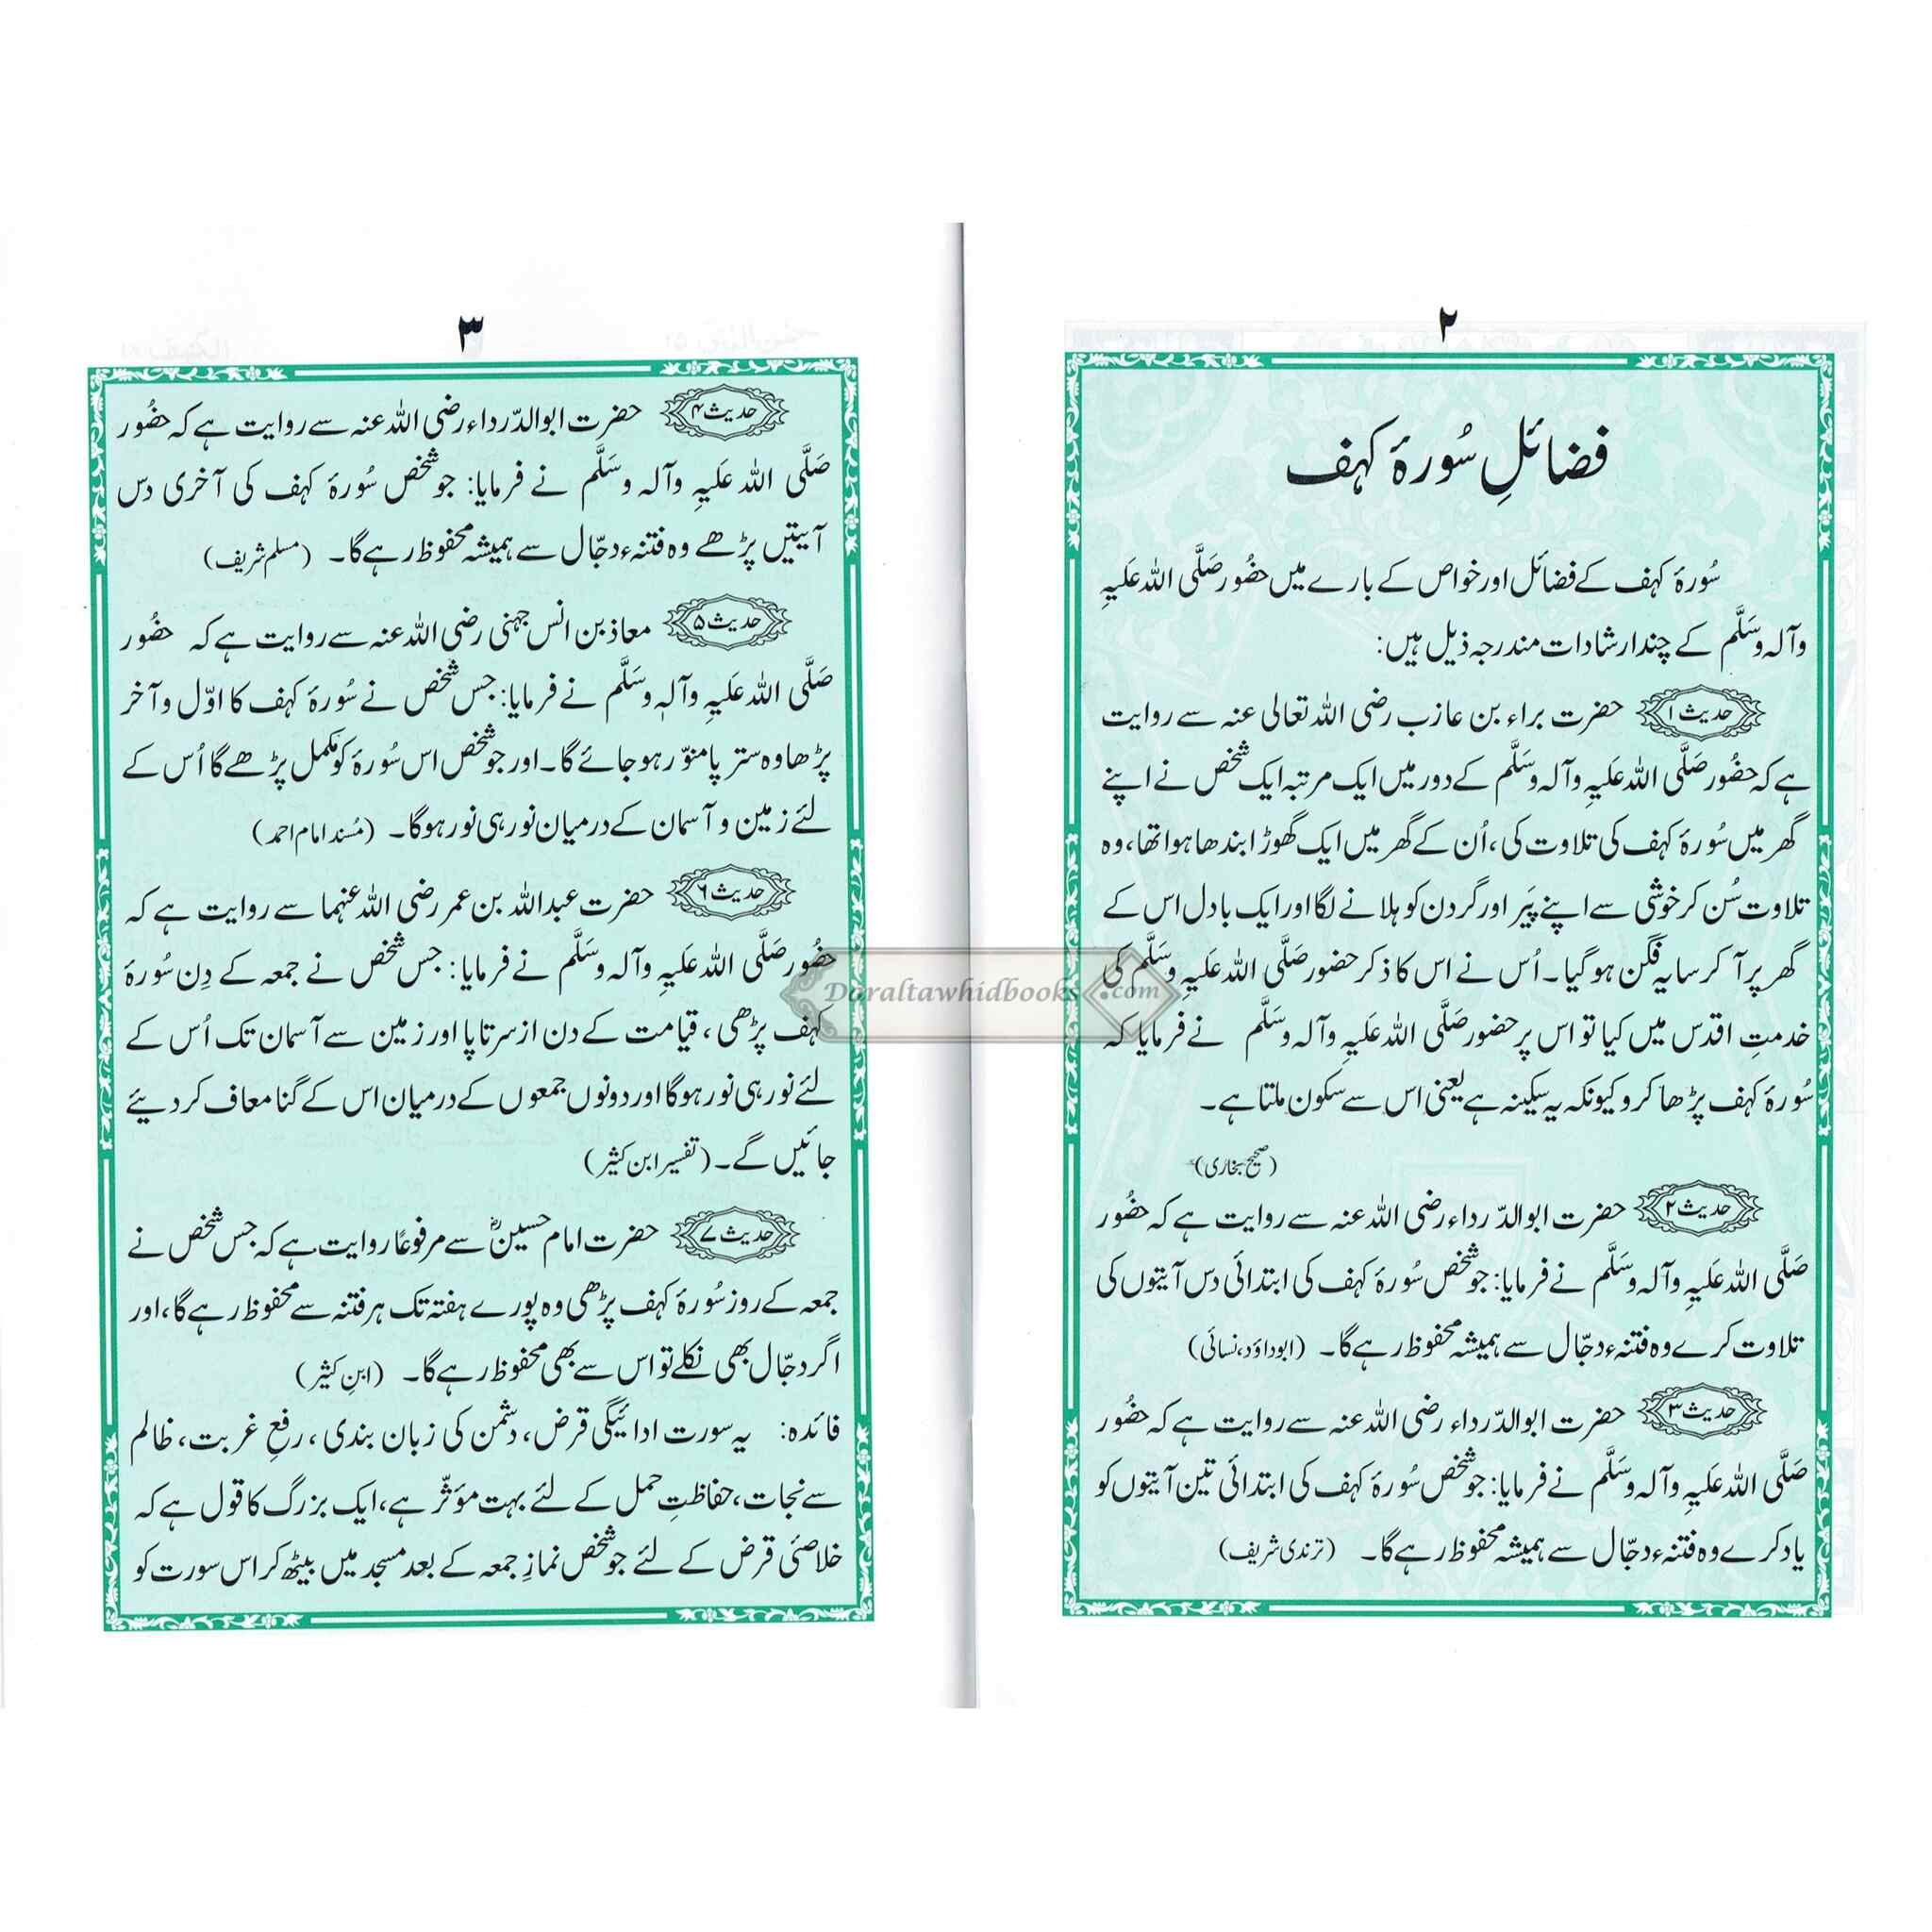 ۲
فضائلِ سُورۂ کہف
سُورۂ کہف کے فضائل اور خواص کے بارے میں حضُور صَلَّی اللہ عَلَیہِ
وآلہ وسَلَّم کے چند ارشادات مندرجہ ذیل ہیں:
حدیث ۱ حضرت براء بن عازب رضی اللہ تعالی عنہ سے روایت
ہے کہ حضُور صَلَّی اللہ عَلَیہِ وآلہ وسَلَّم کے دور میں ایک مرتبہ ایک شخص نے اپنے
گھر میں سُورۂ کہف کی تلاوت کی، اُن کے گھر میں ایک گھوڑا بندھا ہوا تھا، وہ
تلاوت سُن کر خوشی سے اپنے پَیر اور گردن کو ہلانے لگا اور ایک بادل اس کے
گھر پر آ کر سایہ فگن ہو گیا۔ اُس نے اس کا ذکر حضور صَلَّی اللہ عَلَیہِ وسَلَّم کی
خدمتِ اقدس میں کیا تو اس پر حضور صَلَّی اللہ عَلَیہِ وآلہ وسَلَّم نے فرمایا کہ
سُورۂ کہف پڑھا کرو کیونکہ یہ سکینہ ہے یعنی اس سے سکون ملتا ہے۔
(صحیح بخاری)
حدیث ۲ حضرت ابوالدّرداء رضی اللہ عنہ سے روایت ہے کہ حضُور
صَلَّی اللہ عَلَیہِ وآلہ وسَلَّم نے فرمایا: جو شخص سُورۂ کہف کی ابتدائی دس آیتوں کی
تلاوت کرے وہ فتنہء دجّال سے ہمیشہ محفوظ رہے گا۔ (ابوداؤد، نسائی)
حدیث ۳ حضرت ابوالدّرداء رضی اللہ عنہ سے روایت ہے کہ حضُور
صَلَّی اللہ عَلَیہِ وآلہ وسَلَّم نے فرمایا: جو شخص سُورۂ کہف کی ابتدائی تین آیتوں کو
یاد کرے وہ فتنہء دجّال سے ہمیشہ محفوظ رہے گا۔ (ترندی شریف)
۳
حدیث ۴ حضرت ابوالدّرداء رضی اللہ عنہ سے روایت ہے کہ حضُور
صَلَّی اللہ عَلَیہِ وآلہ وسَلَّم نے فرمایا: جو شخص سُورۂ کہف کی آخری دس
آیتیں پڑھے وہ فتنہء دجّال سے ہمیشہ محفوظ رہے گا۔ (مسلم شریف)
حدیث ۵ معاذ بن انس جہنی رضی اللہ عنہ سے روایت ہے کہ حضُور
صَلَّی اللہ عَلَیہِ وآلہٖ وسَلَّم نے فرمایا: جس شخص نے سُورۂ کہف کا اوّل و آخر
پڑھا وہ ستر پا منوّر ہو جائے گا۔ اور جو شخص اس سُورۂ کو مکمل پڑھے گا اُس کے
لئے زمین و آسمان کے درمیان نور ہی نور ہوگا۔ (مُسند امام احمد)
حدیث ۶ حضرت عبداللہ بن عمر رضی اللہ عنہما سے روایت ہے کہ
حضُور صَلَّی اللہ عَلَیہِ وآلہ وسَلَّم نے فرمایا: جس شخص نے جمعہ کے دِن سُورۂ
کہف پڑھی، قیامت کے دن از سر تا پا اور زمین سے آسمان تک اُس کے
لئے نور ہی نور ہوگا اور دونوں جمعوں کے درمیان اس کے گنا معاف کر دیئے
جائیں گے۔ (تفسیر ابن کثیر)
حدیث ۷ حضرت امام حسینؓ سے مرفوعًا روایت ہے کہ جس شخص نے
جمعہ کے روز سُورۂ کہف پڑھی وہ پورے ہفتہ تک ہر فتنہ سے محفوظ رہے گا، اور
اگر دجّال بھی نکلے تو اس سے بھی محفوظ رہے گا۔ (ابنِ کثیر)
فائدہ: یہ سورت ادائیگی قرض، دشمن کی زبان بندی، رفعِ غربت، ظالم
سے نجات، حفاظتِ حمل کے لئے بہت مؤثّر ہے، ایک بزرگ کا قول ہے کہ
خلاصئی قرض کے لئے جو شخص نمازِ جمعہ کے بعد مسجد میں بیٹھ کر اس سورت کو
Daraltawhidbooks.com